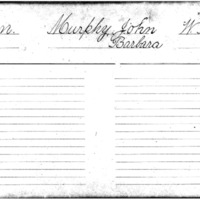 m. Murphy, John W.
Barbara